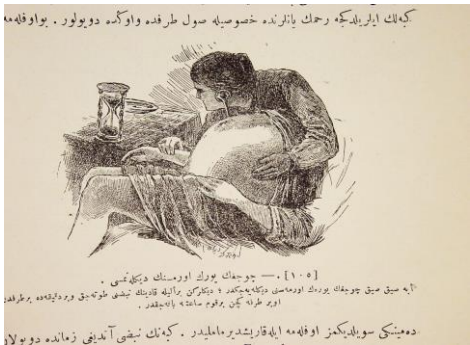 كبه‌لك ايلريلدكجه رحمك يانلرنده خصوصيله صول طرفده و اوكده دويولور . بو اوفله‌مه
[١٠٥] . — چوجغك يورك اورمسنك ديكلنمسى .
ابه صيق صيق چوجغك يورك اورمه‌سنى ديكله‌يه‌جكدر ؛ ديكلركن بر اليله قادينك نبضنى طوته‌جق و بر دقيقه‌ده
اوبر طرفه كچن بر قوم ساعتنه باقه‌جقدر .
ده‌مينكى سويلديكمز اوفله‌مه ايله قاريشديرمامليدر . كبه‌نك نبضى آتديغى زمانده دويولان